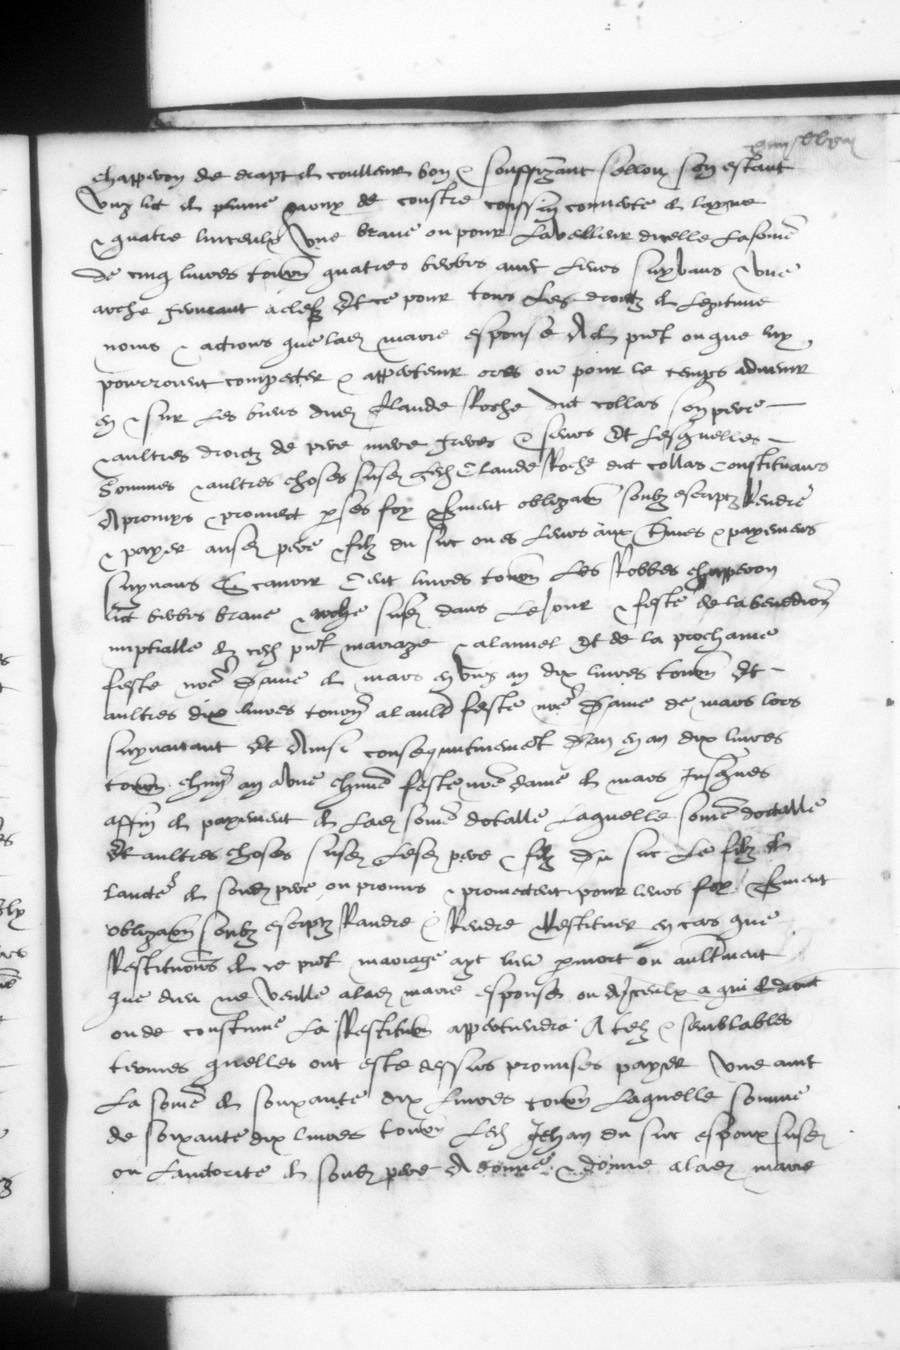 chapperon de drapt de coulleur bon & souffizant sellon son estaut
Ung lict de plume garny de coustre cussin couverte de layne
& quatre linceulx Une brave ou pour la valleur dicelle la some
de cinq livres tourn quatre brebis avec leurs suyvans & une
arche fermant a clefz Et ce pour tous les droictz de legitime
noms & actions que lad marie esponse A de pnt ou que luy
pourroient compecter & appertenir ores ou pour le temps advenir
en & sur les biens dud Claude Roche dit collas son pere
& aultres droictz de pere mere freres & seurs Et lesquelles
Sommes & aultres choses susd led Claude Roche dit collas constituans
A promys & promect p ses foy & serment obligaon soubz escriptz Rendre
& payer ausd pere & filz du suc ou es leurs aux termes & payemens
suyvans Et scavoir Cent livres tourn les Robbes chapperon
lict brebis brave & arche susd dans le Jour & feste de la benediction
nuptialle de ced pnt mariage & alannel Et de la prochaine
feste nre Dame de mars en ung an dix livres tourn Et
aultres dix livres tourn a laultre feste nre Dame de mars lors
suyvant Et Ainsi consequutivement Dan en an dix livres
tourn chun an a une chune feste nre dame de mars Jusques
affin de payement de lad some dotalle Laquelle some dotalle
Et aultres choses susd lesd pere & filz Du suc Le filz de
laucte de sond pere on promis & promectent pour leurs foy & serment
obligaon soubz escriptz Randre & Rendre & Restituer en cas que
Restitution de ce pnt mariage ayt lieu p mort ou aultrement
que dieu ne veulle a lad marie esponse ou a ceulx a qui de droict
ou de coustume La Restitution appertiendra A telz & semblables
termes quelles ont este dessus promises payer Une avec
La some de soixante dix Livres tourn Laquelle somme
de soixante dix livres tourn Led Jehan du suc espoux susd
ou Lauctorite de sond pere A donne & donne a lad marie